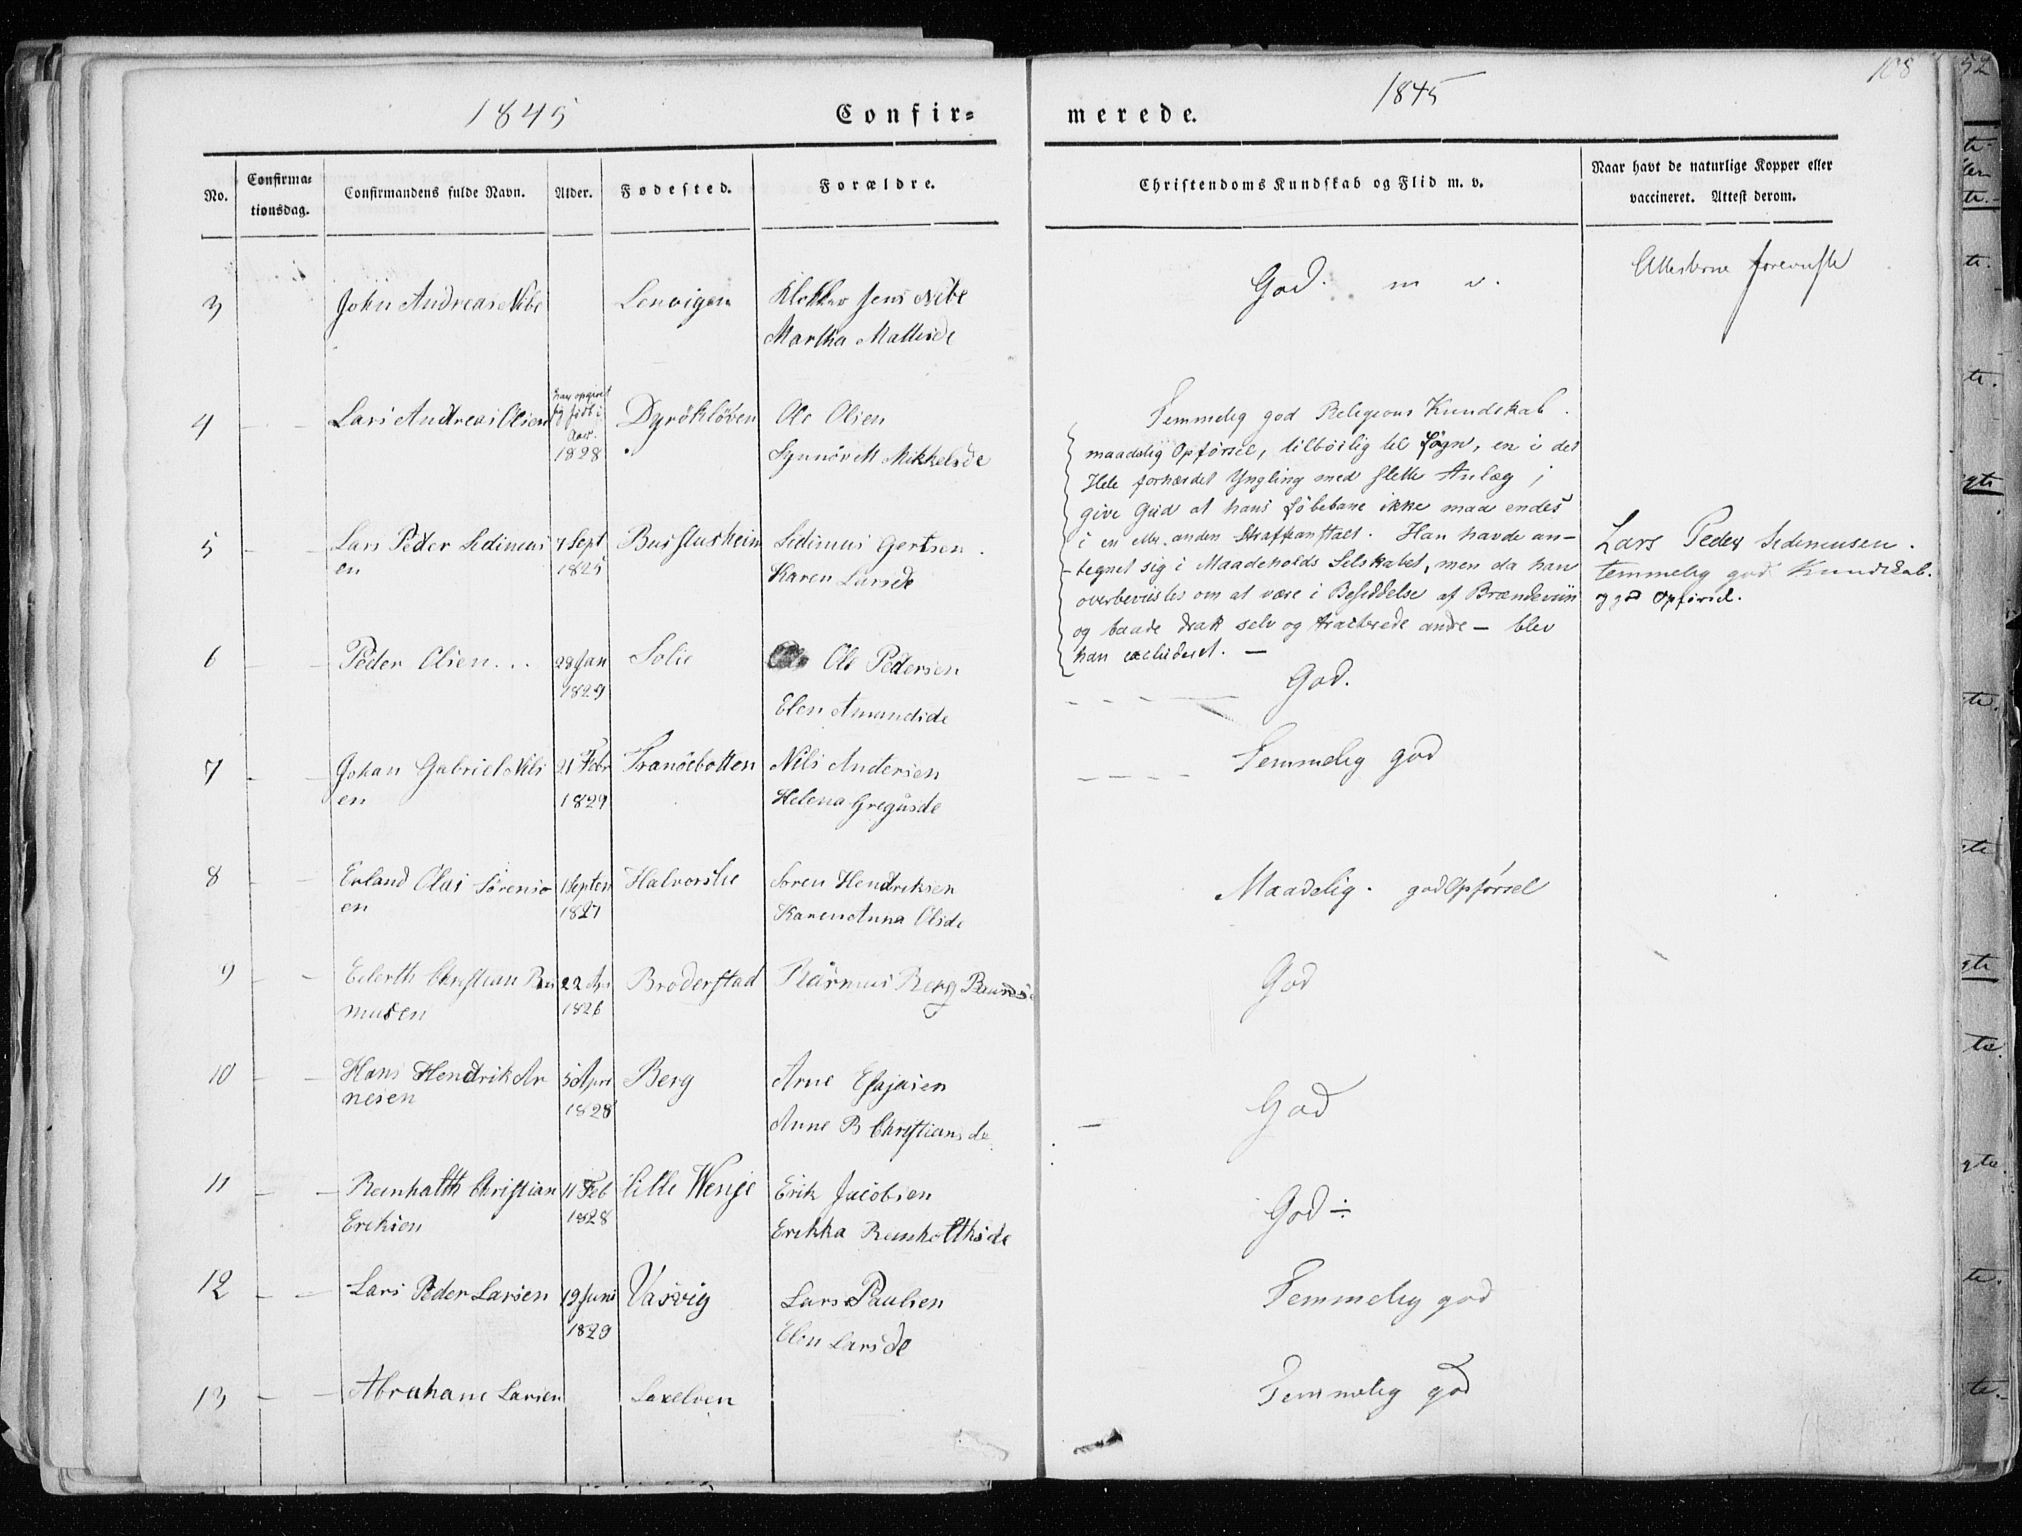 1845
Confir=
merede.
1845
108
52
No.
Confirma=
tionsdag.
Confirmandens fulde Navn.
Alder.
Fødested.
Forældre.
Christendoms Kundskab og Flid m. v.
Naar havt de naturlige Kopper eller
vaccineret. Attest derom.
3 John Andreas Nibe Lenvigen Klokker Jens Nibe
Martha Mattisd
God. m v.
Attesterne foreviiste
4 Lars Andreas Olsen Dyrökløven Ole Olsen
1828 Synnöv M Mikkelsd
Temmelig god Religions Kundskab.
maadelig Opførsel, tilbøilig til Løgn, en i det
Hele forhærdet Yngling med slette Anlæg;
give Gud at hans Løbebane ikke maa endes
i en eller anden Straffeanstalt. Han havde an-
-tegnet sig i Maadeholds Selskabet, men da han
overbeviistes om at være i Besiddelse af Brændeviin
og baade drak selv og tracterede andre — blev
han excluderet. —
5 Lars Peder Sedimus 7 Sept Sedimus Gertsen.
en 1825 Karen Larsd
Lars Peder Sedemusen.
temmelig god Kundskab.
og god Opførsel.
6 Peder Olsen... 28 Jan Solie Ole Pedersen
1829
Elen Amandsd
God.
7 Johan Gabriel Nils 21 Febr Tranöebotten Nils Andersen
en 1829 Helena Gregusd
Temmelig god
8 Erland Olai Sörens 1 Septem Halvorslie Soren Hendriksen
en 1827 Karen Anna Olsd
Maadelig. god Opførsel
9 Eilerth Christian Ras 22 Apr Broderstad Rasmus Berg
musen 1826
God
10 Hans Hendrik Ar 5 Apri Berg Arne Esajasen
nesen 1828 Anne B Christiansd
God
11 Reinholth Christian 11 Feb Lille Wenje Erik Jacobsen
Eriksen 1828 Erikka Reinholthsd
God
12 Lars Peder Larsen 19 Juni Vasvig Lars Paulsen
1829 Elen Larsd
Temmelig god
13 Abraham Larsen Laxelven
Temmelig god